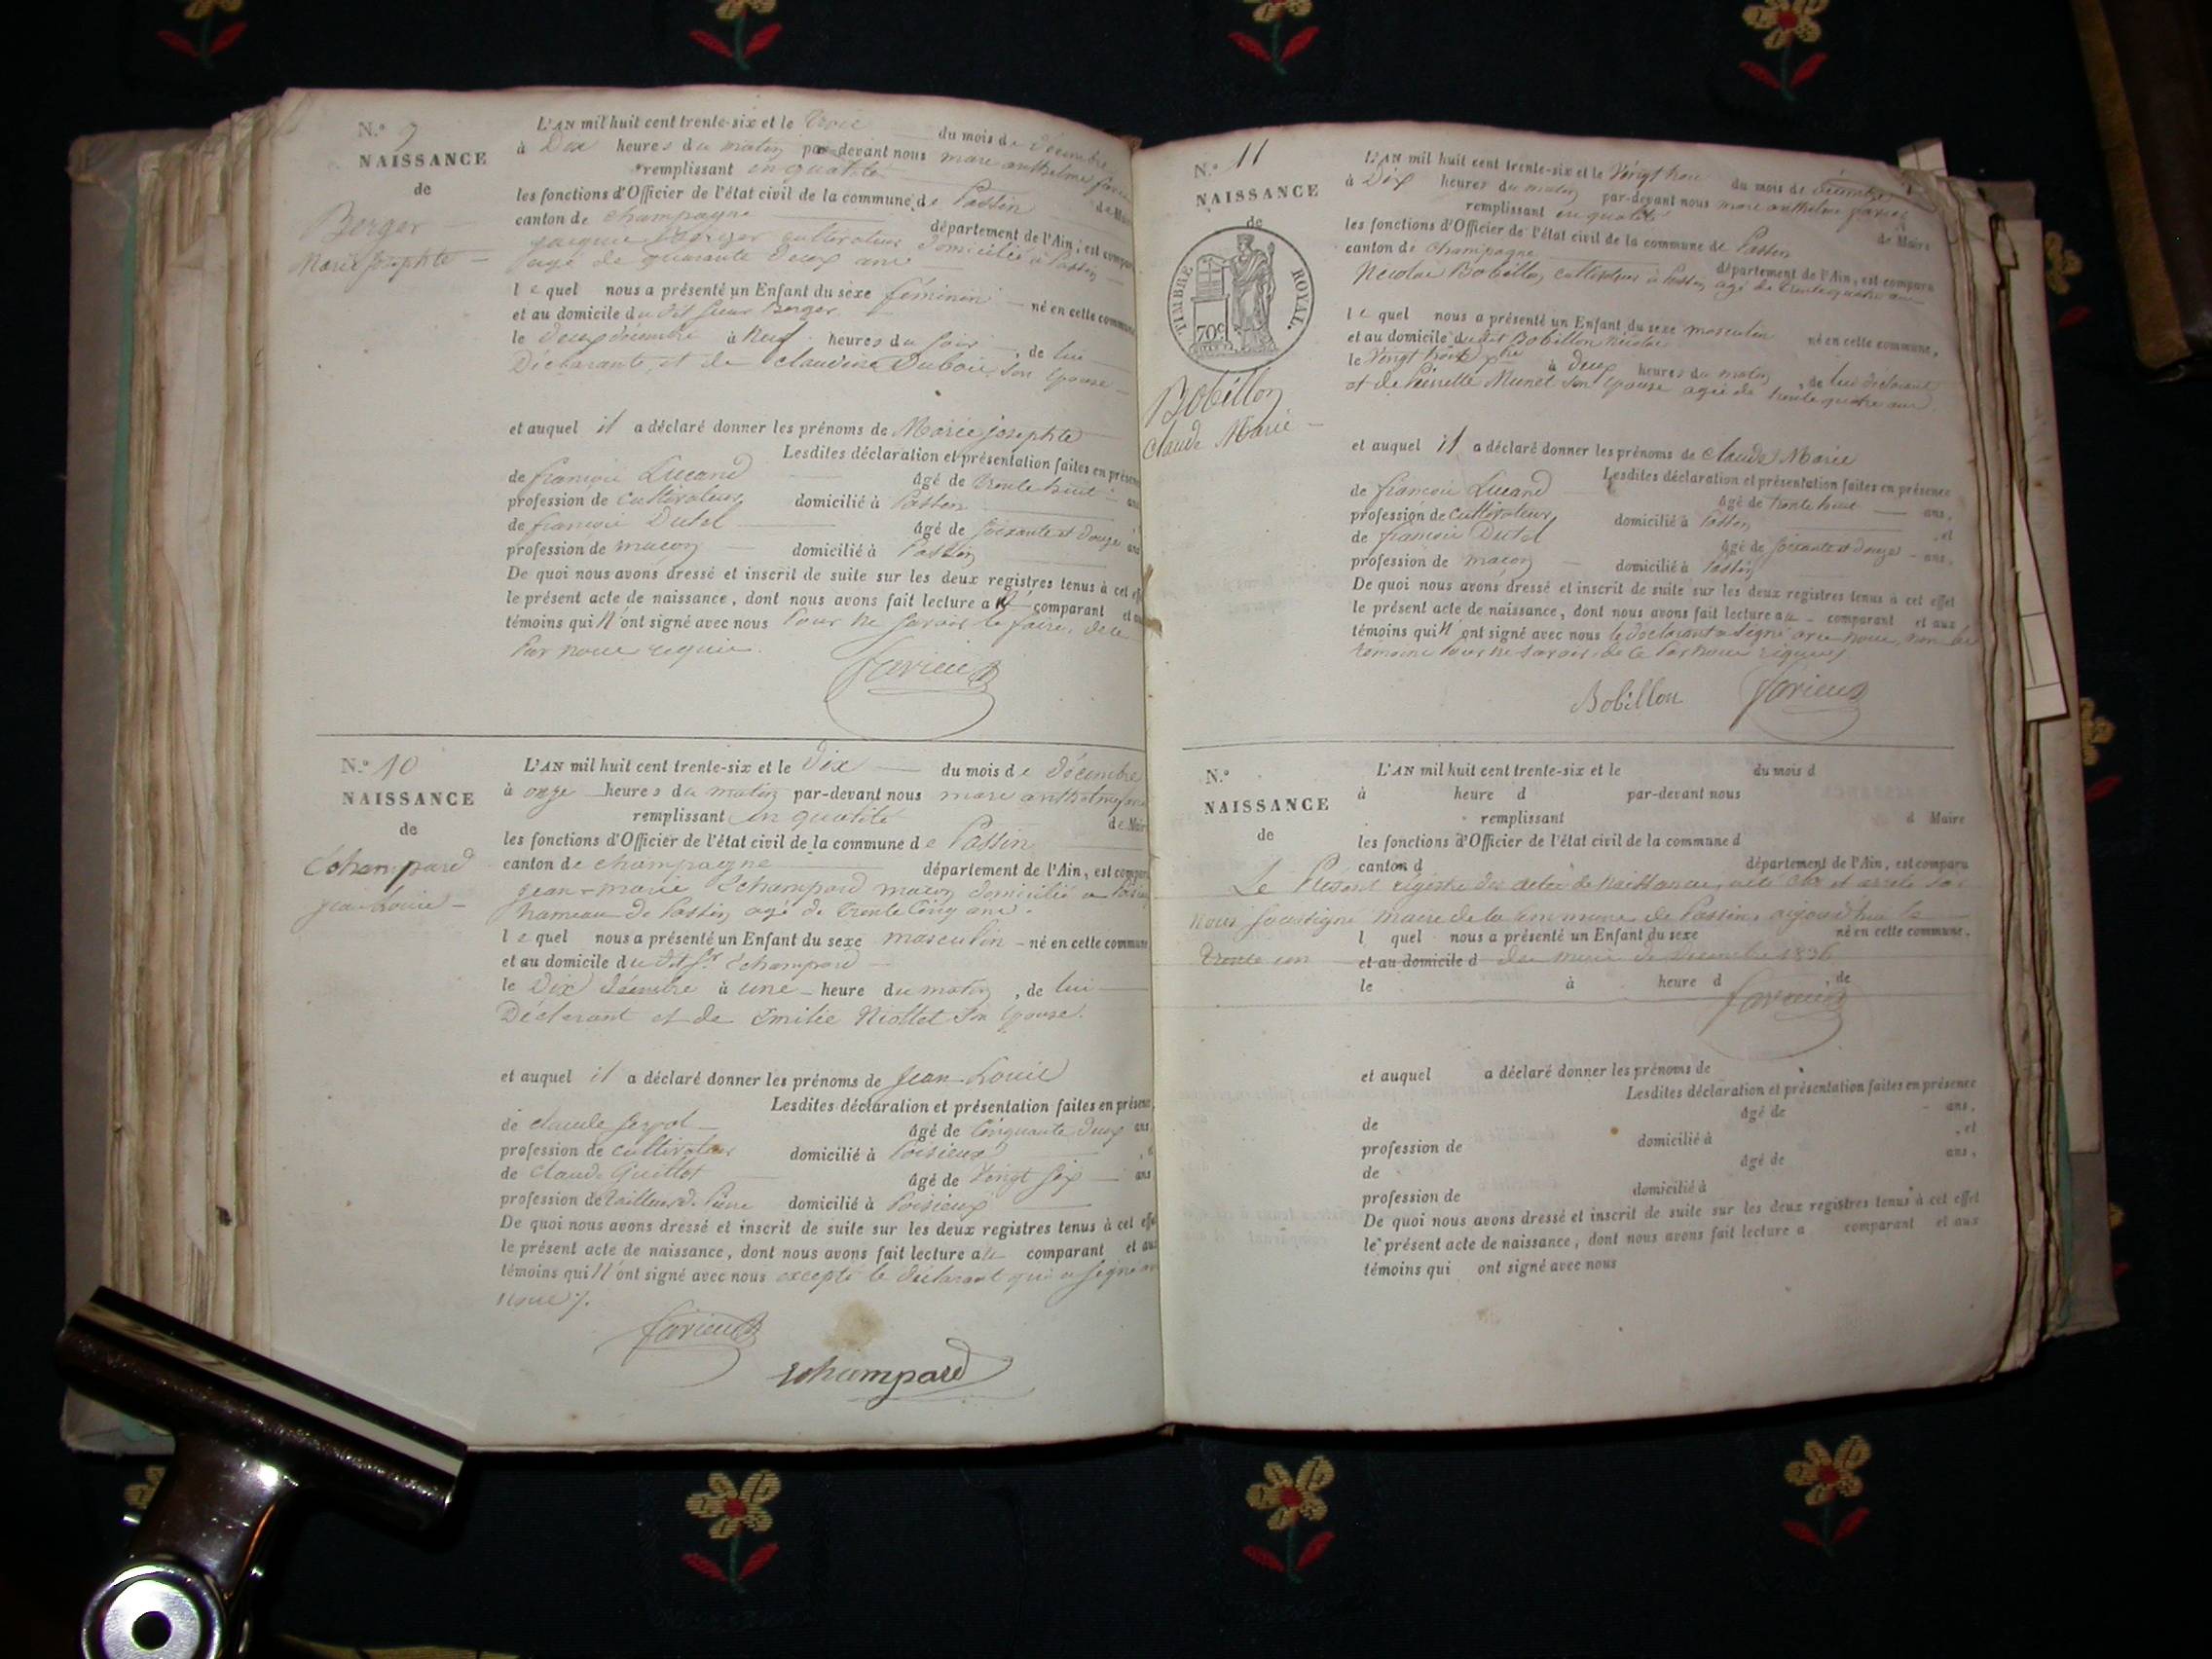 N.° 9
NAISSANCE
de
Berger
Marie josephte
L'AN mil huit cent trente-six et le trois du mois de décembre
à Dix heures du matin par-devant nous marc anthelme
remplissant en qualité de Maire
les fonctions d'Officier de l'état civil de la commune de Passin
canton de champagne département de l'Ain, est comparu
jacques Berger cultivateur domicilié à Passin
agé de quarante deux ans
le quel nous a présenté un Enfant du sexe féminin né en cette commune
et au domicile du dit sieur Berger
le deux décembre à neuf heures du soir, de lui
Déclarante, et de Claudine Duboie son épouse
et auquel il a déclaré donner les prénoms de Marie josephte
Lesdites déclaration et présentation faites en présence
de françois Lucand âgé de trente huit ans
profession de cultivateur domicilié à Passin
de françois Dutel âgé de soixante et douze ans
profession de maçon domicilié à Passin
De quoi nous avons dressé et inscrit de suite sur les deux registres tenus à cet effet
le présent acte de naissance, dont nous avons fait lecture au comparant et aux
témoins qui n'ont signé avec nous pour ne savoir le faire, de ce
par nous requis.
Favieux
N.° 10
NAISSANCE
de
Echampard
jean Louis
L'AN mil huit cent trente-six et le dix du mois de décembre
à onze heures du matin par-devant nous marc anthelme
remplissant en qualité de Maire
les fonctions d'Officier de l'état civil de la commune de Passin
canton de champagne département de l'Ain, est comparu
jean-marie Echampard maçon domicilié a
hameau de Passin agé de trente cinq ans.
le quel nous a présenté un Enfant du sexe masculin né en cette commune
et au domicile du dit Sr Echampard
le Dix décembre à une heure du matin, de lui
Déclarant et de Emilie Niollet son épouse.
et auquel il a déclaré donner les prénoms de jean Louis
Lesdites déclaration et présentation faites en présence
de claude âgé de cinquante deux ans
profession de cultivateur domicilié à Poisieux
de claude Guillot âgé de vingt six ans
profession de tailleur de Pierre domicilié à Poisieux
De quoi nous avons dressé et inscrit de suite sur les deux registres tenus à cet effet
le présent acte de naissance, dont nous avons fait lecture au comparant et aux
témoins qui n'ont signé avec nous excepté le déclarant qui a signé
nous
Favieux
Echampard
N.° 11
NAISSANCE
de
TIMBRE ROYAL.
70c
Bobillon
Claude Marie
L'AN mil huit cent trente-six et le vingt trois du mois de décembre
à Dix heures du matin par-devant nous marc anthelme
remplissant en qualité de Maire
les fonctions d'Officier de l'état civil de la commune de Passin
canton de champagne département de l'Ain, est comparu
Nicolas Bobillon cultivateur à Passin agé de trente quatre ans
le quel nous a présenté un Enfant du sexe masculin né en cette commune,
et au domicile du dit Bobillon Nicolas
le vingt trois Xbre à deux heures du matin, de lui déclarant
et de Pierrette Munet son épouse agée de trente quatre ans.
et auquel il a déclaré donner les prénoms de claude Marie
Lesdites déclaration et présentation faites en présence
de françois Lucand âgé de trente huit ans,
profession de cultivateur domicilié à Passin, et
de françois Dutel âgé de soixante et douze ans,
profession de maçon domicilié à Passin
De quoi nous avons dressé et inscrit de suite sur les deux registres tenus à cet effet
le présent acte de naissance, dont nous avons fait lecture au comparant et aux
témoins qui n'ont signé avec nous le déclarant a signé avec nous, non les
temoins pour ne savoir de ce par nous requis
Bobillon Favieux
N.°
NAISSANCE
de
L'AN mil huit cent trente-six et le du mois d
à heure d par-devant nous
remplissant d Maire
les fonctions d'Officier de l'état civil de la commune d
canton d département de l'Ain, est comparu
Le Présent régistre des actes de naissance, a été clos et arrêté par
nous soussigné maire de la commune de Passin, aujourd'hui le
l quel nous a présenté un Enfant du sexe né en cette commune.
trente un et au domicile d du mois de decembre 1836
le à heure d, de
Favieux
et auquel a déclaré donner les prénoms de
Lesdites déclaration et présentation faites en présence
de âgé de ans,
profession de domicilié à, et
de âgé de ans,
profession de domicilié à
De quoi nous avons dressé et inscrit de suite sur les deux registres tenus à cet effet
le présent acte de naissance, dont nous avons fait lecture a comparant et aux
témoins qui ont signé avec nous